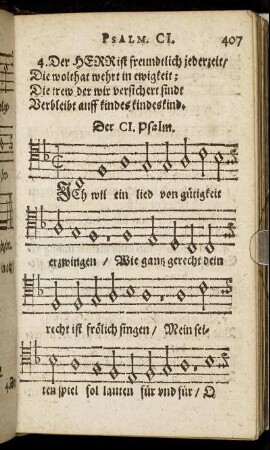 PSALM. CI. 407
4. Der HERR ist freundtlich jederzeit/
Die wolthat wehrt in ewigkeit;
Die trew der wir versichert sindt
Verbleibt auff kindes kindeskind.
Der CI. Psalm.
ICh wil ein lied von gütigkeit
erzwingen / Wie gantz gerecht dein
recht ist frölich singen / Mein sei-
ten spiel sol lauten für vnd für / O